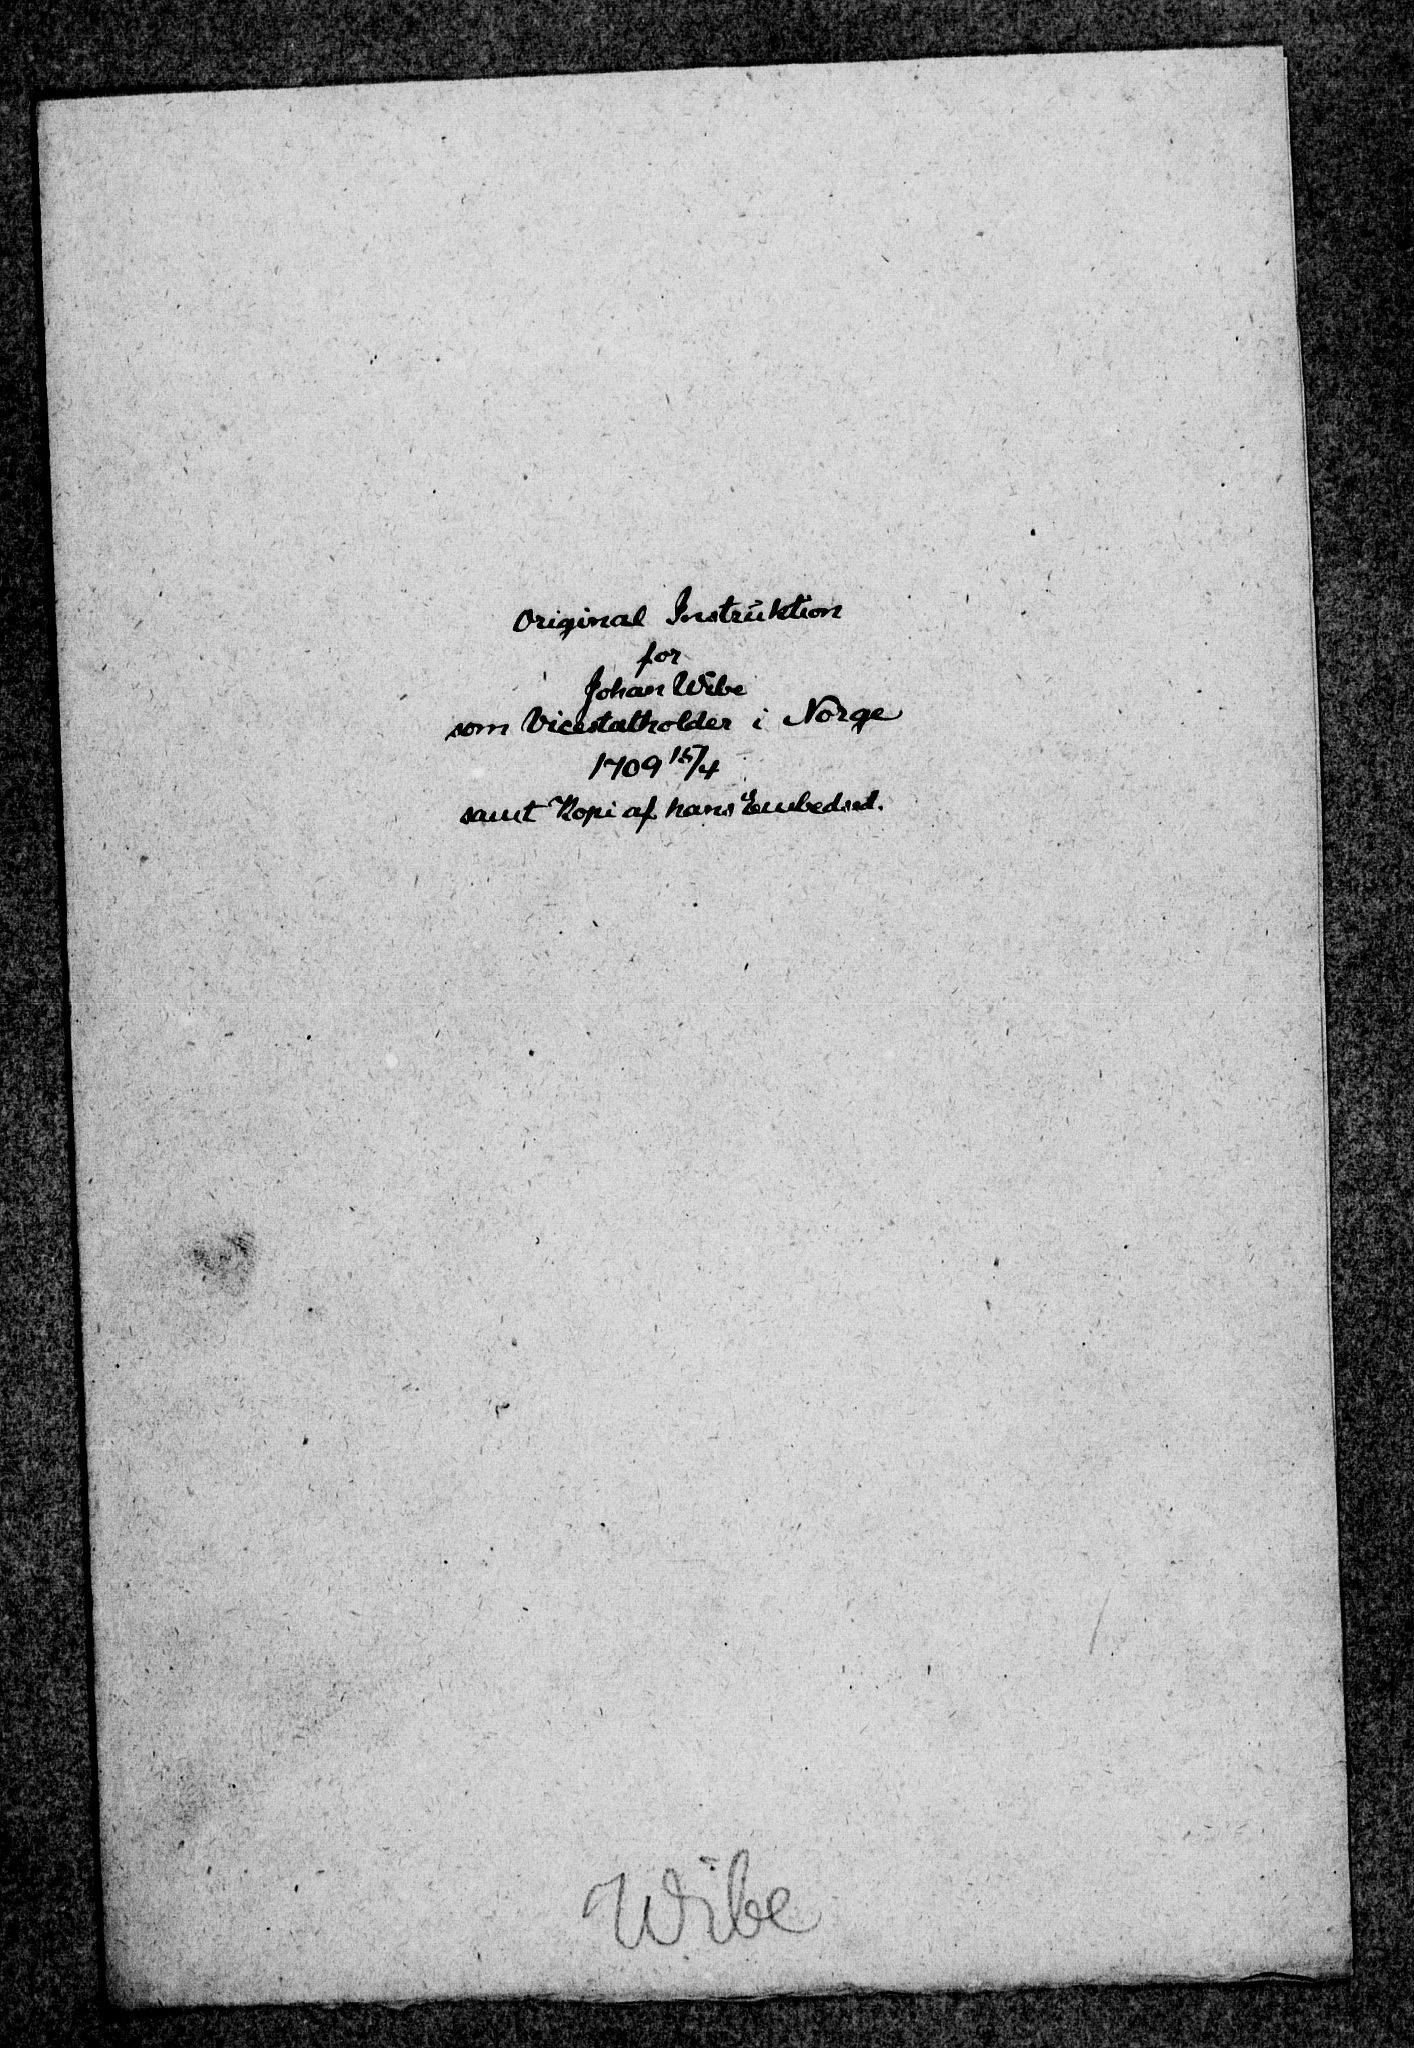 Original Instruktion
for
Johan Wibe
som Vicestatholder i Norge
1709 15/4
samt Kopi af hans Embedsed.
Wibe